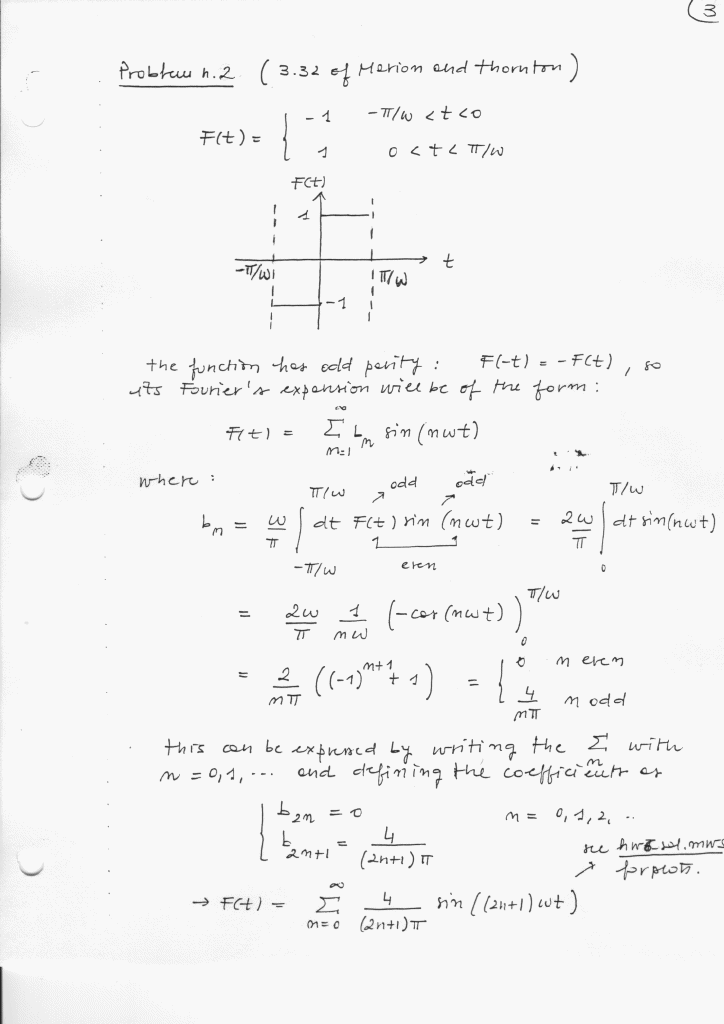 3
Problem n.2 (3.32 of Marion and Thornton)
F(t) = { -1 -π/ω < t < 0
1 0 < t < π/ω
F(t)
1
t
-π/ω π/ω
-1
the function has odd parity : F(-t) = -F(t), so
its Fourier's expansion will be of the form :
F(t) = Σ_{n=1}^{∞} b_n sin(nωt)
where :
odd odd
b_n = ω/π ∫_{-π/ω}^{π/ω} dt F(t) sin(nωt) = 2ω/π ∫_0^{π/ω} dt sin(nωt)
even
= 2ω/π 1/nω (-cos(nωt))_0^{π/ω}
= 2/nπ ((-1)^{n+1} + 1) = { 0 n even
4/nπ n odd
this can be expressed by writing the Σ_n with
n = 0,1, ... and defining the coefficients as
{ b_{2n} = 0 n = 0,1,2, ..
b_{2n+1} = 4/(2n+1)π
see sol.mws
for plots.
→ F(t) = Σ_{n=0}^{∞} 4/(2n+1)π sin((2n+1)ωt)